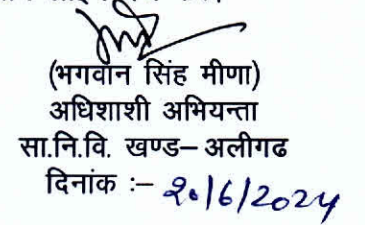 (भगवान सिंह मीणा)
अधिशाशी अभियन्ता
सा.नि.वि. खण्ड– अलीगढ
दिनांक :– 20/6/2024